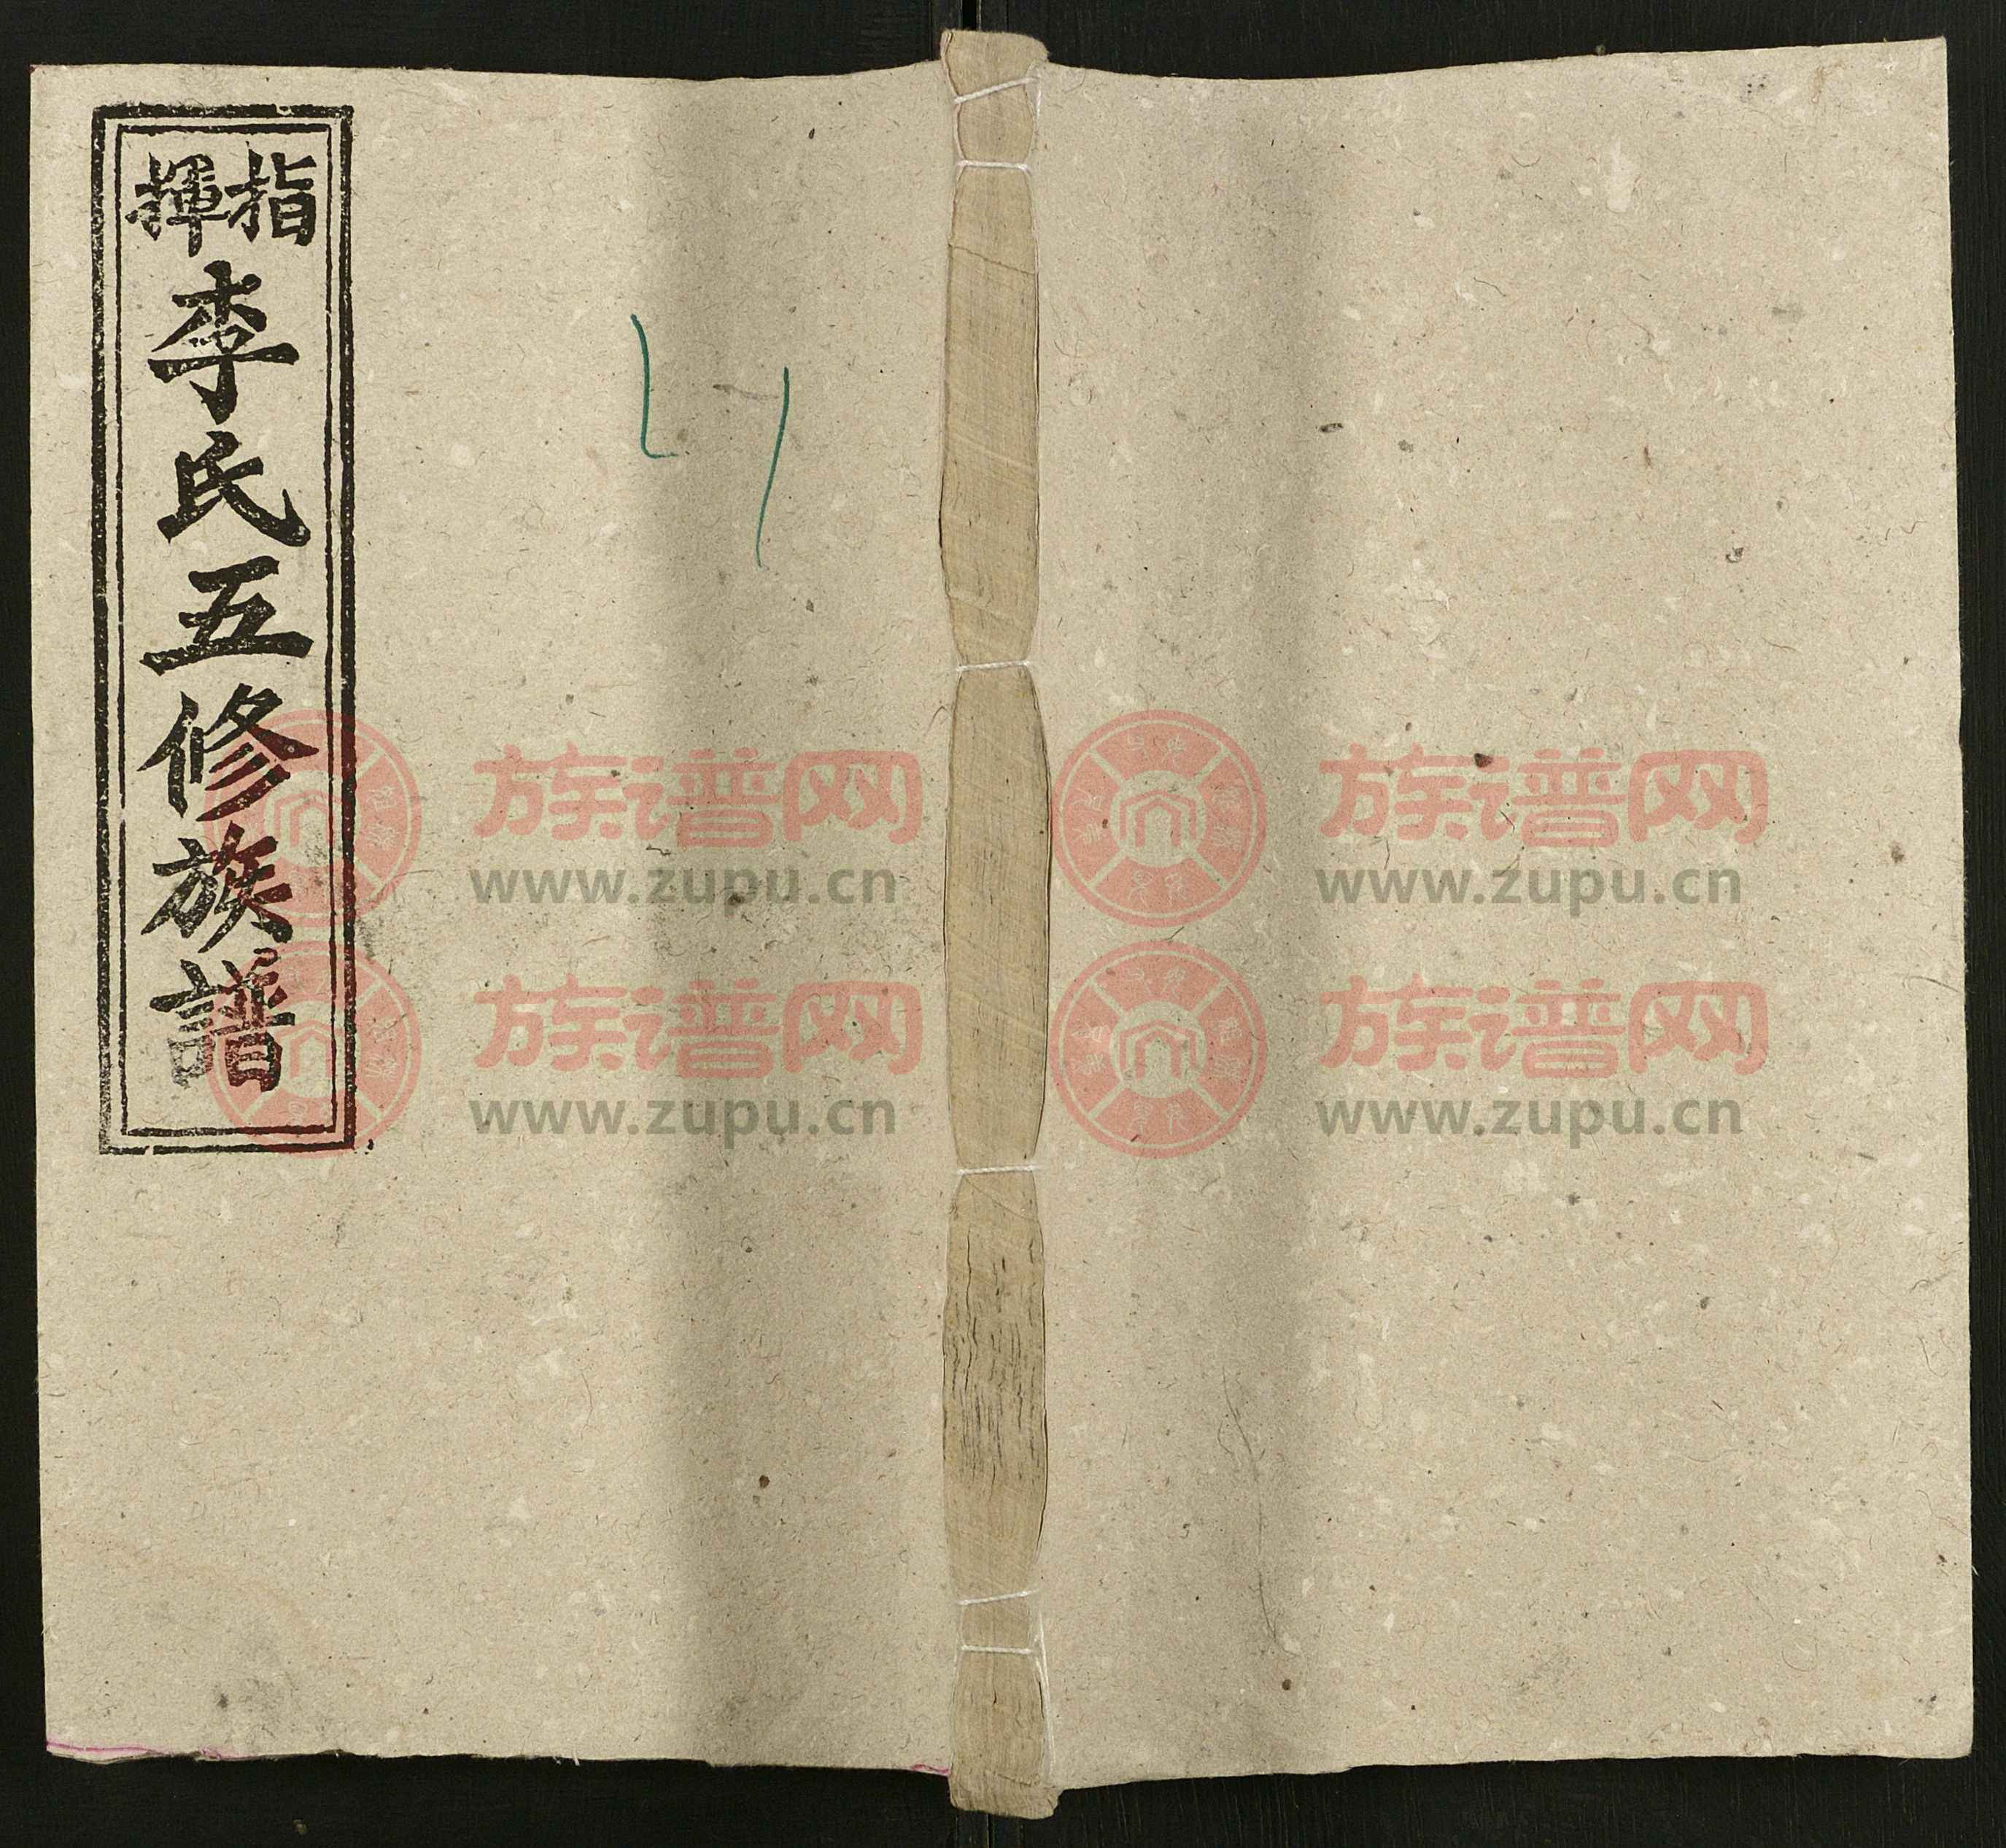 指揮
李氏五修族譜
族谱网
www.zupu.cn
族谱网
www.zupu.cn
族谱网
www.zupu.cn
族谱网
www.zupu.cn